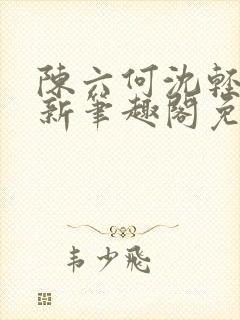 陳六何沈輕
新筆趣閣免
韦少飛